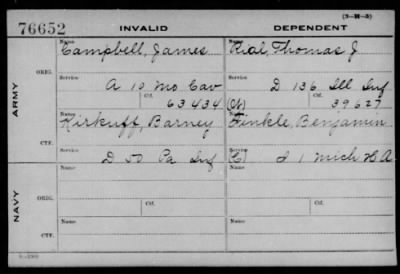 (3-M-5)
76652 INVALID DEPENDENT
Name Name
Campbell, James Rial, Thomas J
ORIG.
Service Service
A 10 Mo Cav D 136 Ill Inf
Ctf. Ctf.
63434 (W) 39627
ARMY
Name Name
Kirkuff, Barney Finkle, Benjamin
CTF.
Service Service
D 50 Pa Inf (C) I 1 Mich H A
Name Name
ORIG.
Service Service
Ctf. Ctf.
NAVY
Name Name
CTF.